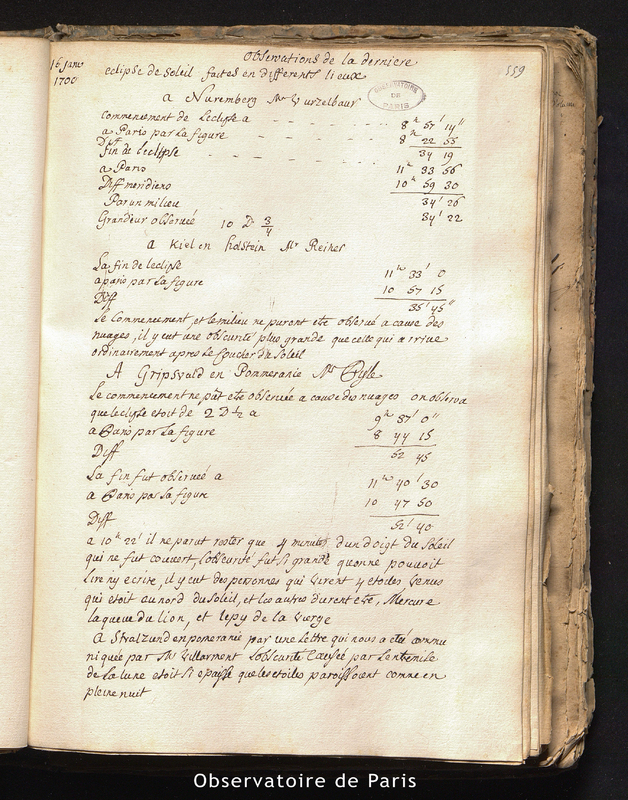 16 janv
1700
559
Observations de la derniere
eclipse de soleil faites en differents lieux
OBSERVATOIRE
DE
PARIS
a Nuremberg Mr Vurzelbaur
commencement de Leclipse a 8h 57' 14"
a Paris par La figure 8h 22 55
Diff 34 19
fin de leclipse
a Paris 11h 33 56
Diff meridiens 10h 59 30
Par un milieu 34' 26
Grandeur observée 10 D 3/4 34' 22
a Kiel en holstein Mr Reiher
La fin de leclipse 11h 33' 0
a paris par La figure 10 57 15
Diff 35' 45"
Le Commencement, et le milieu ne purent etre observé a cause des
nuages, il y eut une obscurité plus grande que celle qui arrive
ordinairement apres Le Coucher du Soleil
A Gripsvald en Pommeranie Mr Pyle
Le commencement ne put etre observée a cause des nuages on observa
que leclipse etoit de 2 D 1/2 a 9h 37' 0"
a Paris par La figure 8 44 15
Diff 52 45
La fin fut observée a 11h 40' 30
a Paris par La figure 10 47 50
Diff 52' 40
a 10h 22' il ne parut rester que 4 minutes d'un doigt du Soleil
qui ne fut couvert, l'obscurité fut si grande quon ne pouvoit
Lire ny ecrire, il y eut des personnes qui virent 4 etoiles Venus
qui etoit au nord du Soleil, et les autres durent etre, Mercure
la queue du lion, et lepy de la vierge
A Stralzund en pomeranie par une Lettre qui nous a eté commu
niquée par Mr Villarment Lobscurité Causée par Lentremise
de La lune etoit si epaisse que les etoiles paroissoient comme en
pleine nuit
Observatoire de Paris